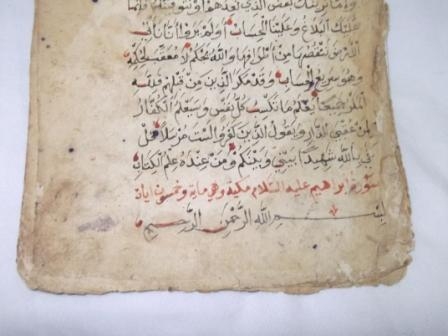 وان ما نرينك بعض الذي نعدهم او نتوفينك فانما
عليك البلاغ وعلينا الحساب اولم يروا انا ناتي
الارض ننقصها من اطرافها والله يحكم لا معقب لحكمه
وهو سريع الحساب وقد مكر الذين من قبلهم فلله
المكر جميعا يعلم ما تكسب كل نفس وسيعلم الكفار
لمن عقبى الدار ويقول الذين كفروا لست مرسلا قل
كفى بالله شهيدا بيني وبينكم ومن عنده علم الكتاب
سورة ابراهيم عليه السلام مكية وهي ماية وخمسون اياة
بسم الله الرحمن الرحيم